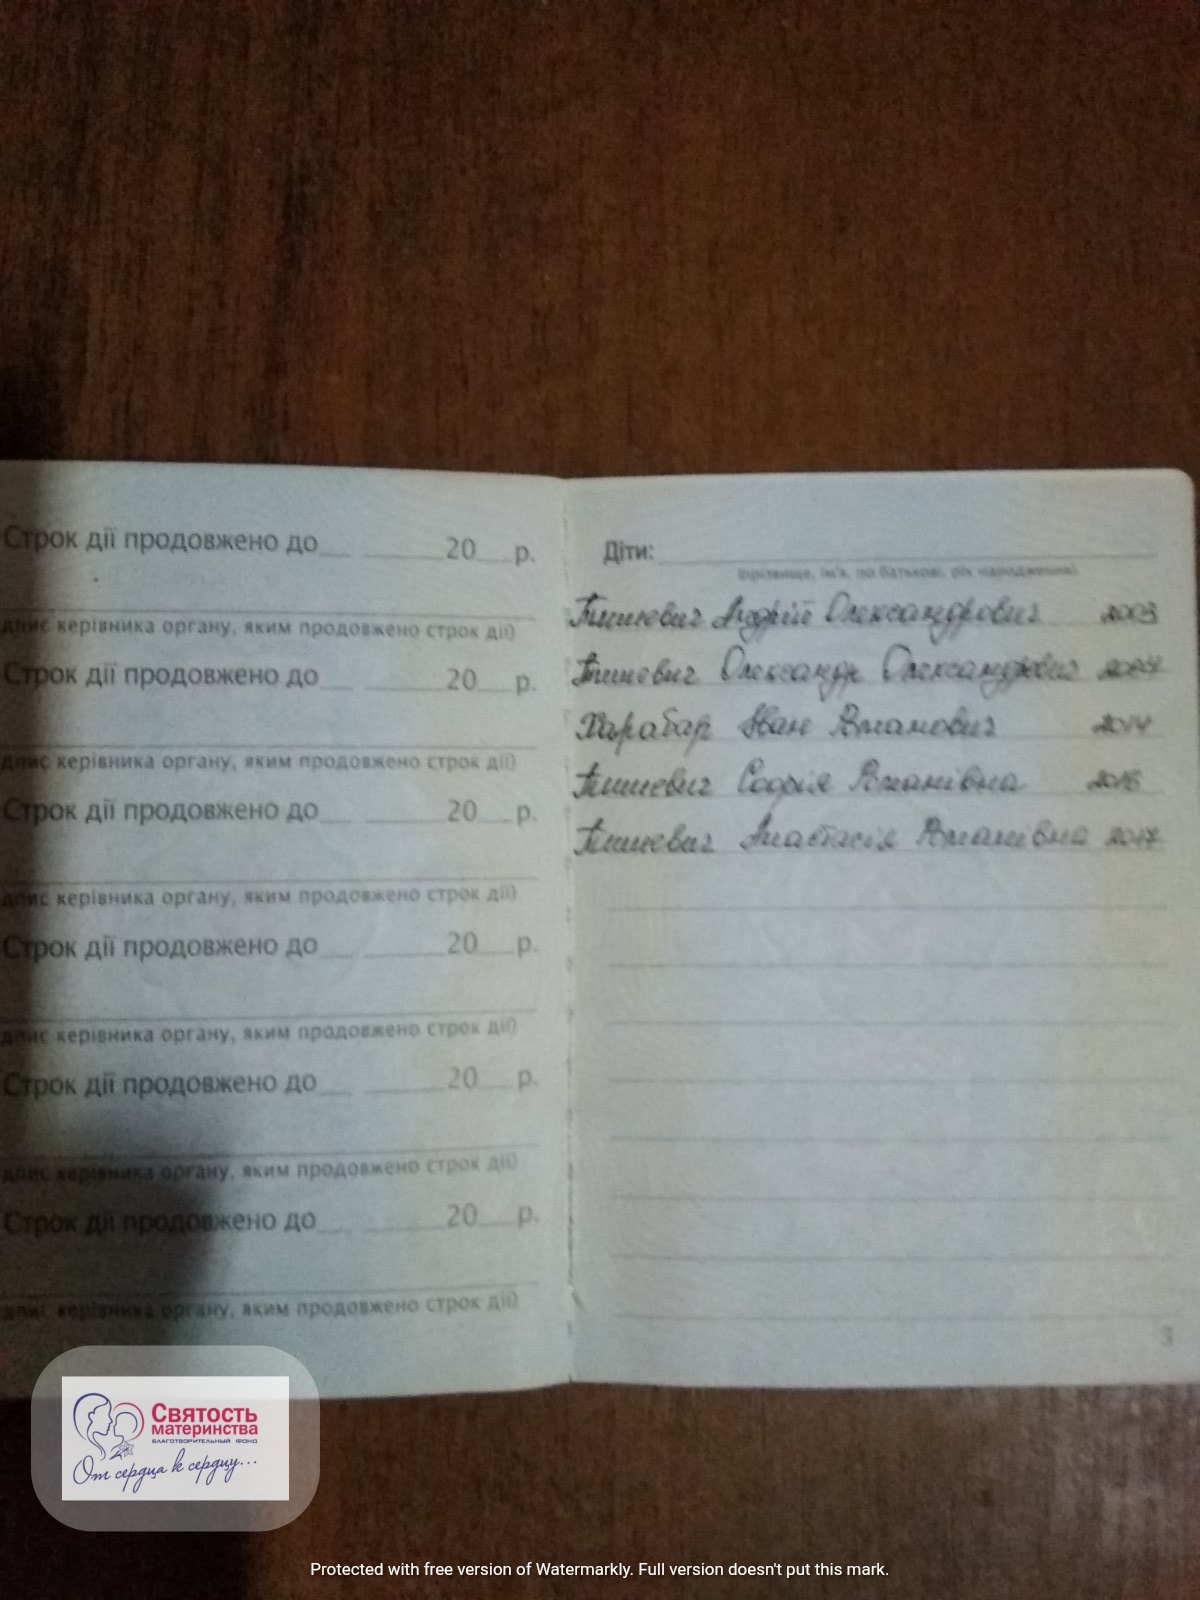 Строк дії продовжено до 20 р.
керівника органу, яким продовжено строк дії)
Строк дії продовжено до 20 р.
керівника органу, яким продовжено строк дії)
Строк дії продовжено до 20 р.
керівника органу, яким продовжено строк дії)
Строк дії продовжено до 20 р.
керівника органу, яким продовжено строк дії)
Строк дії продовжено до 20 р.
керівника органу, яким продовжено строк дії)
Строк дії продовжено до 20 р.
керівника органу, яким продовжено строк дії)
Діти:
(прізвище, ім'я, по батькові, рік народження)
Андрій Олександрович 2003
Олександр Олександрович
Харабар Іван 2014
Софія 2016
Анастасія 2017
3
Святость
материнства
БЛАГОТВОРИТЕЛЬНЫЙ ФОНД
От сердца к сердцу...
Protected with free version of Watermarkly. Full version doesn't put this mark.